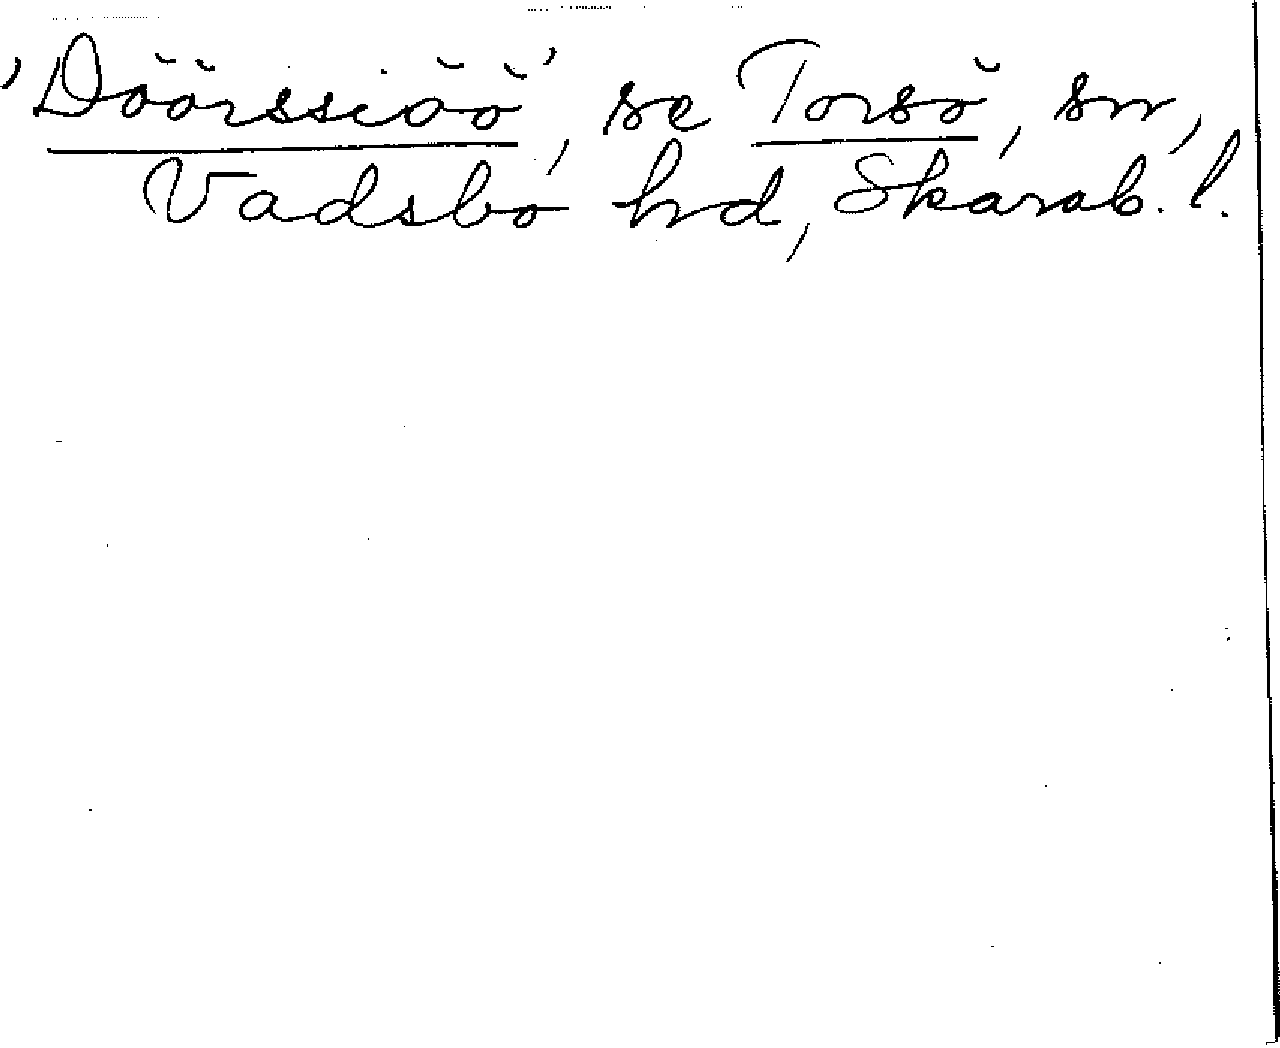 'Döörssiöö', se Torsö, sn,
Vadsbo hd, Skarab. l.